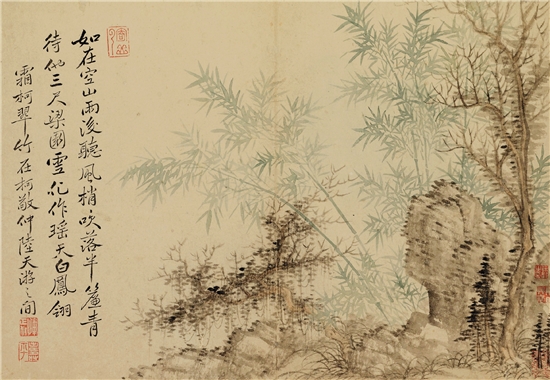 如在空山雨後聽風梢吹落半簾青
待他三尺梁園雪化作瑶天白鳳翎
霜柯翠竹在柯敬仲陸天游之間